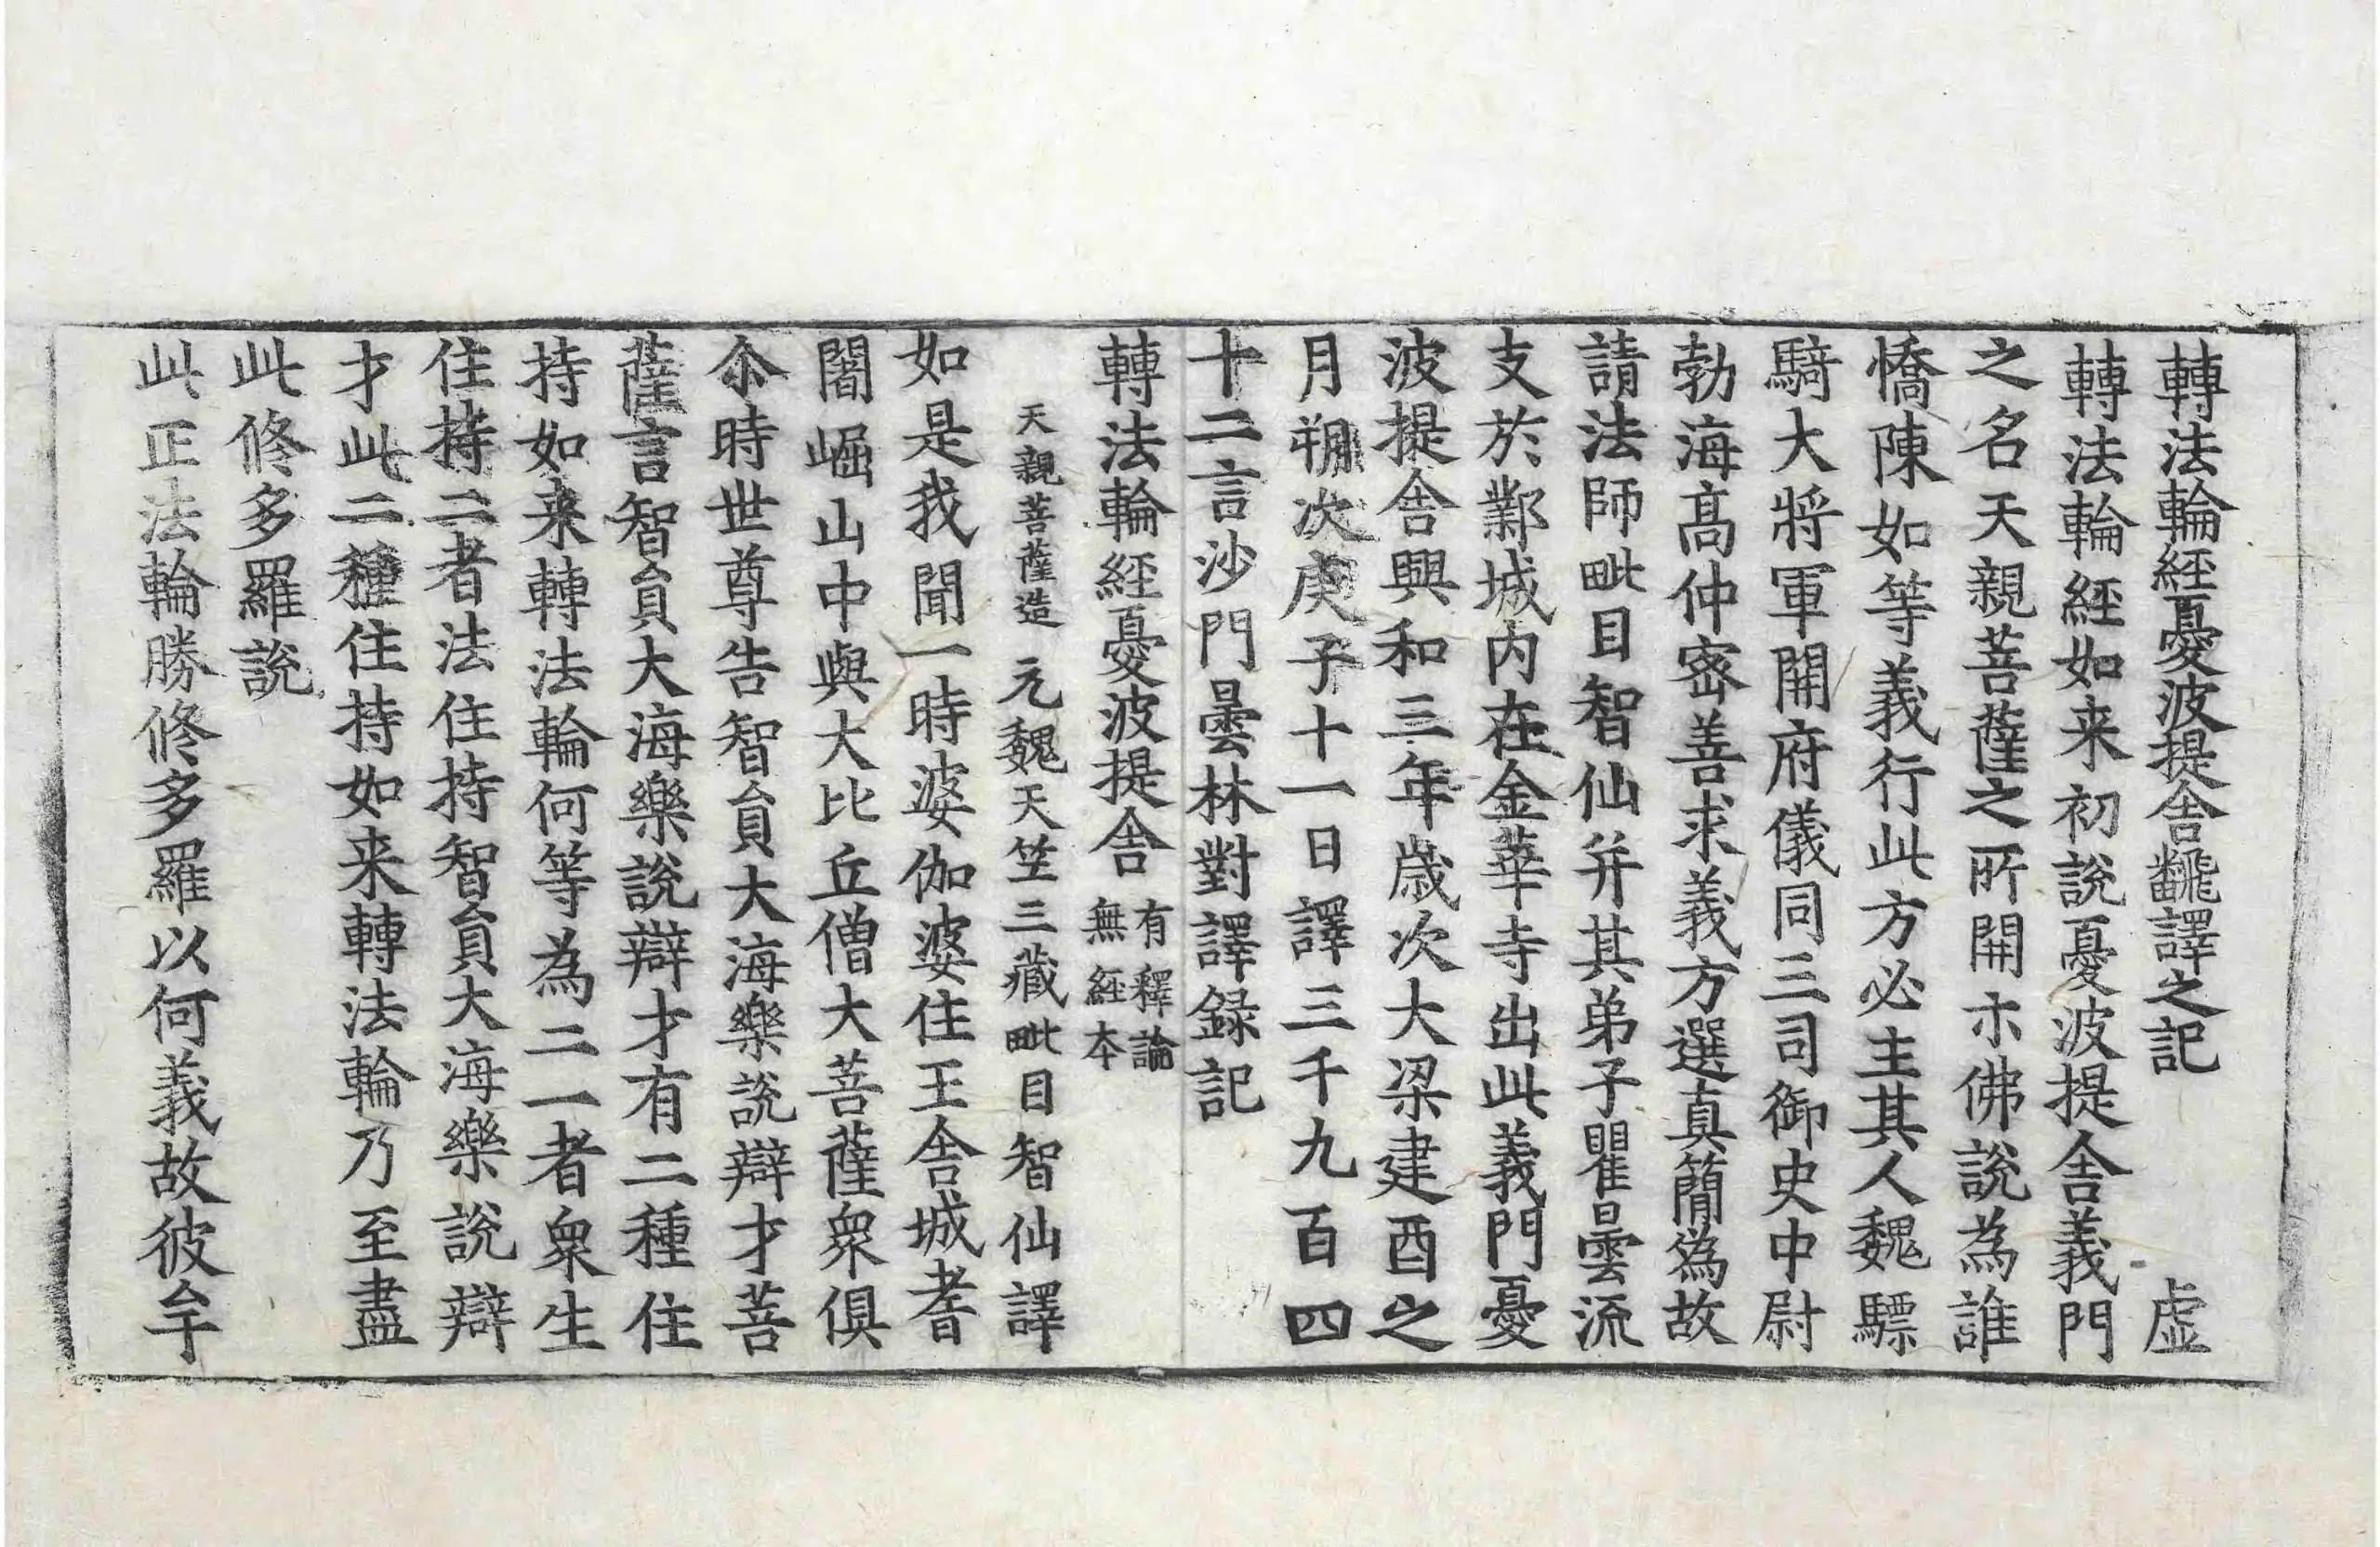 轉法輪經憂波提舍飜譯之記 虛
轉法輪經如来初說憂波提舍義門
之名天親菩薩之所開示佛說為誰
憍陳如等義行此方必主其人魏驃
騎大將軍開府儀同三司御史中尉
勃海髙仲宻善求義方選真簡僞故
請法師毗目智仙并其弟子瞿曇流
支於鄴城內在金華寺出此義門憂
波提舍興和三年歲次大梁建酉之
月朔次庚子十一日譯三千九百四
十二言沙門曇林對譯録記
轉法輪經憂波提舍 有釋論無經本
天親菩薩造 元魏天竺三藏毗目智仙譯
如是我聞一時婆伽婆住王舍城耆
闍崛山中與大比丘僧大菩薩衆俱
尒時世尊告智貟大海樂說辯才菩
薩言智貟大海樂說辯才有二種住
持如来轉法輪何等為二一者衆生
住持二者法住持智貟大海樂說辯
才此二種住持如来轉法輪乃至盡
此修多羅說
此正法輪勝修多羅以何義故彼牟